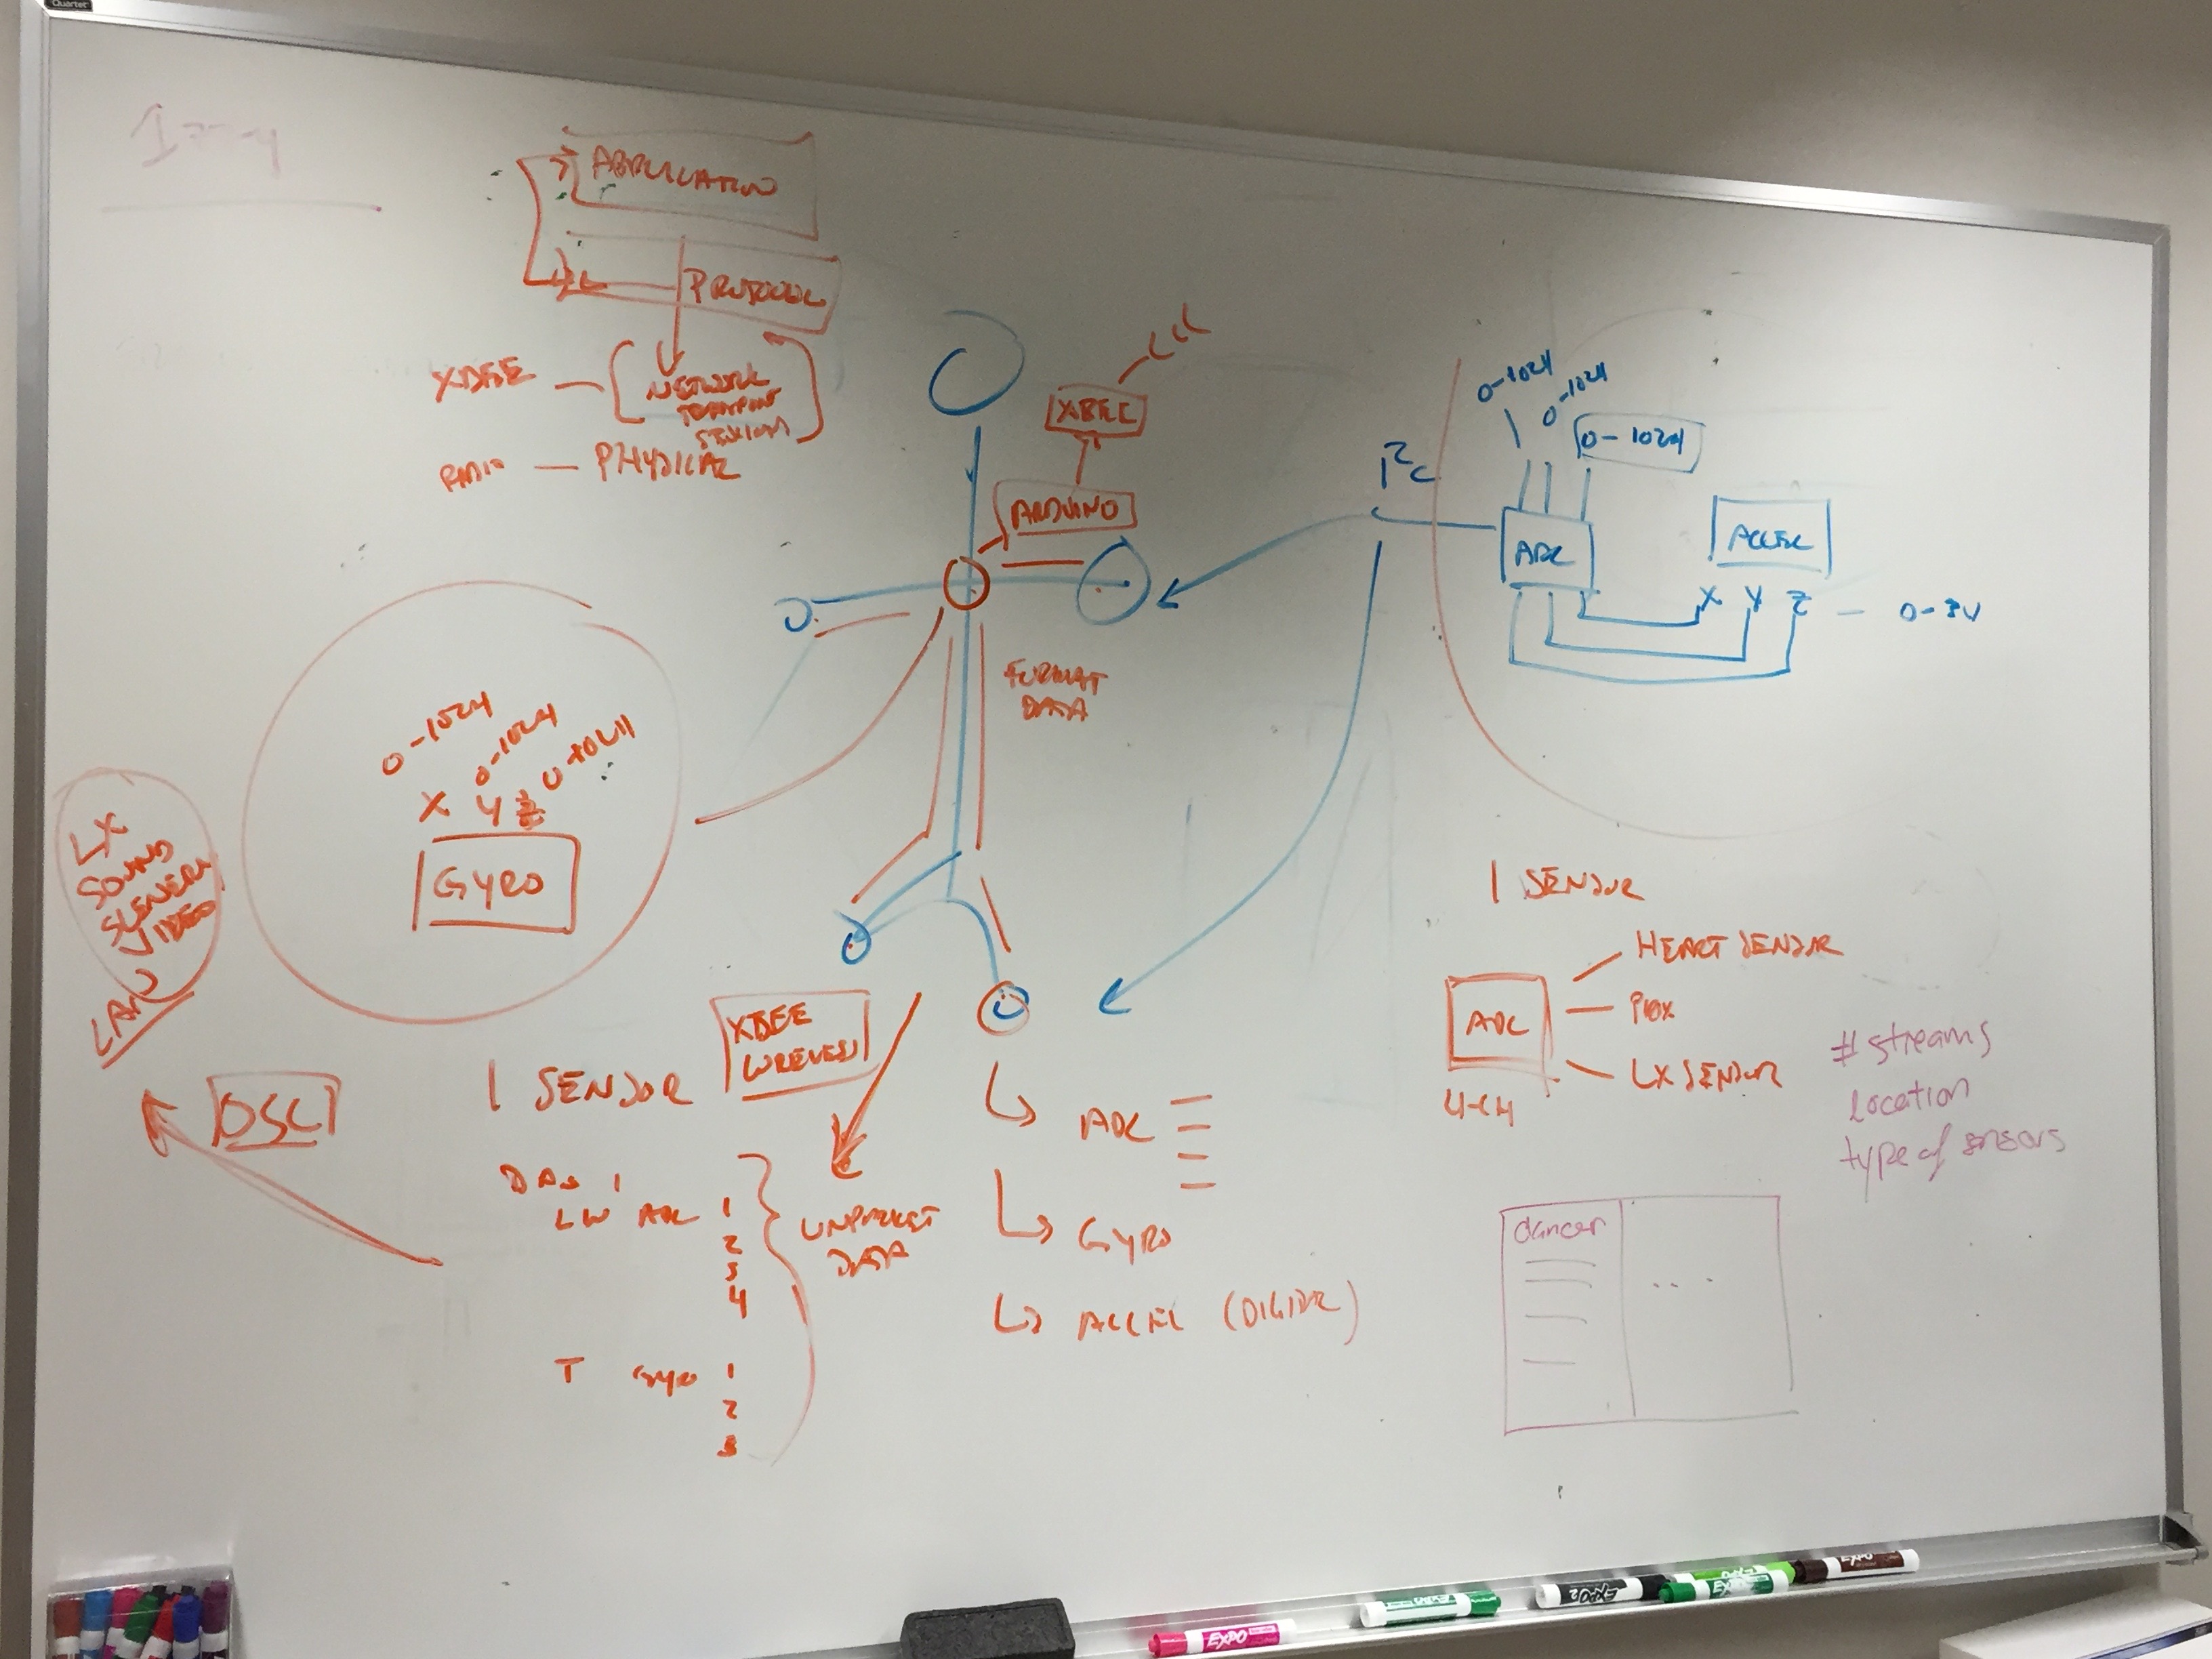 Quartet
APPLICATION
PROTOCOL
XBEE — NETWORK
TRANSPORT
SESSION
RADIO — PHYSICAL
XBEE
ARDUINO
FORMAT
DATA
I²C
0-1024
0-1024
0-1024
ADC
ACCEL
X Y Z — 0-3V
0-1024
0-1024
0-1024
X Y Z
GYRO
LX
SOUND
SCENERY
VIDEO
LAN
OSC
1 SENSOR
XBEE
WIRELESS
LW ADC 1
2
3
4
T GYRO 1
2
3
UNPACKET
DATA
ADC
GYRO
ACCEL (DIGITAL)
1 SENSOR
ADC
4-CH
HEART SENSOR
LX SENSOR
# streams
location
type of sensors
dancer
...
EXPO
EXPO
EXPO2
EXPO
EXPO
EXPO